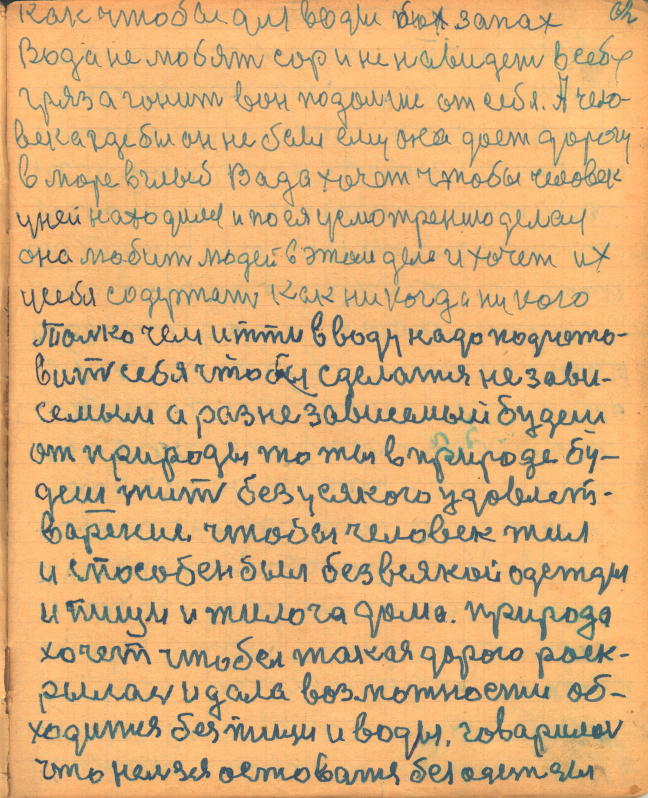 как чтобы для воды был запах
Вода не любят сор и не навидет всебе
гряз а гонит вон подольше от себя. А чело-
века где бы он не был ему она дает дорогу
в море вглыб Вада хочет чтобы человек
уней находился и по ея усмотрению делал
она любит людей в этом деле и хочет их
усебя содержат как никогда никого
Толко чем итти в воду надо подгото-
вит себя чтобы сделатся незави-
семым а раз незавиемый будеш
от природы то ты в природе бу-
деш жит без усякого удовлет-
варение чтобы человек жил
и способен был без всякой одежды
и пищи и жилога дома. природа
хочет чтобы такая дорого раск-
рылась и дала возможности об-
ходится без пищи и воды, говарилось
что нелзя оставатя без одежды